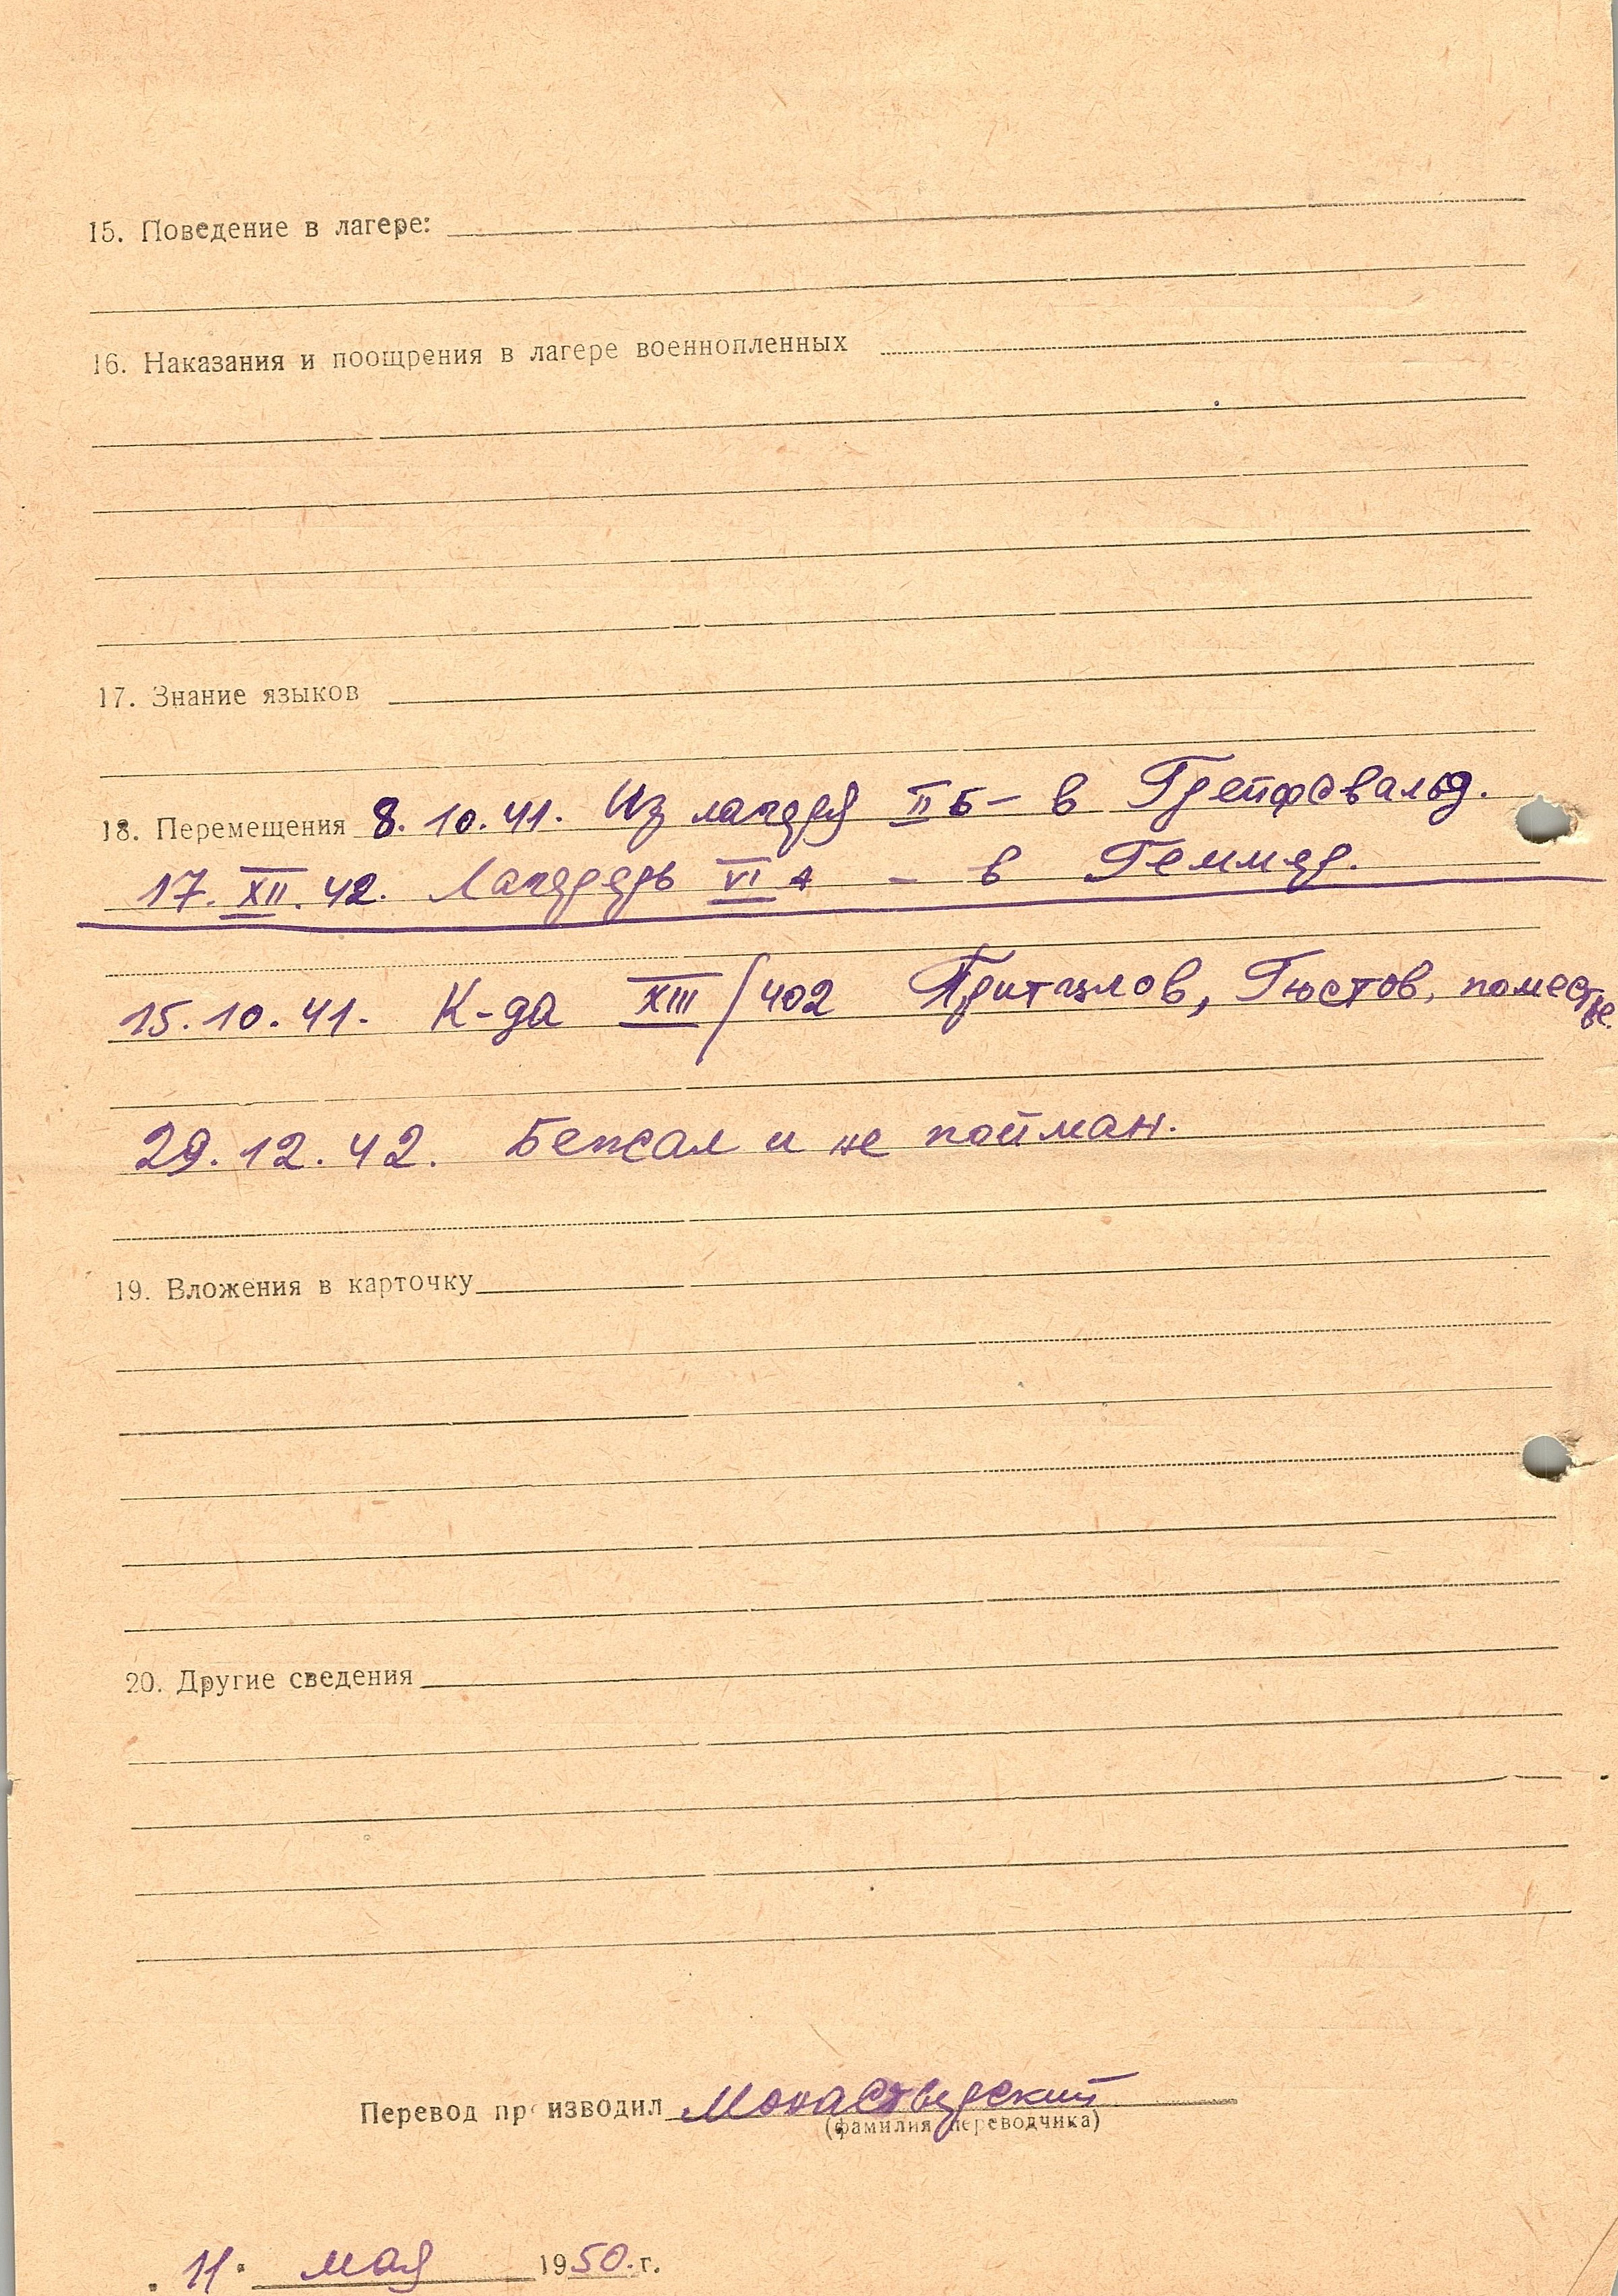 15. Поведение в лагере:
16. Наказания и поощрения в лагере военнопленных
17. Знание языков
18. Перемещения 8. 10. 41. Из лагеря II Б – в Грейфсвальд.
17. XII. 42. Лагерь VI А – в Геммер.
15. 10. 41. К-да XIII/402 Притцлов, Гюстов, поместье.
29. 12. 42. Бежал и не пойман.
19. Вложения в карточку
20. Другие сведения
Перевод производил Монастырский
(фамилия переводчика)
11. мая 1950. г.